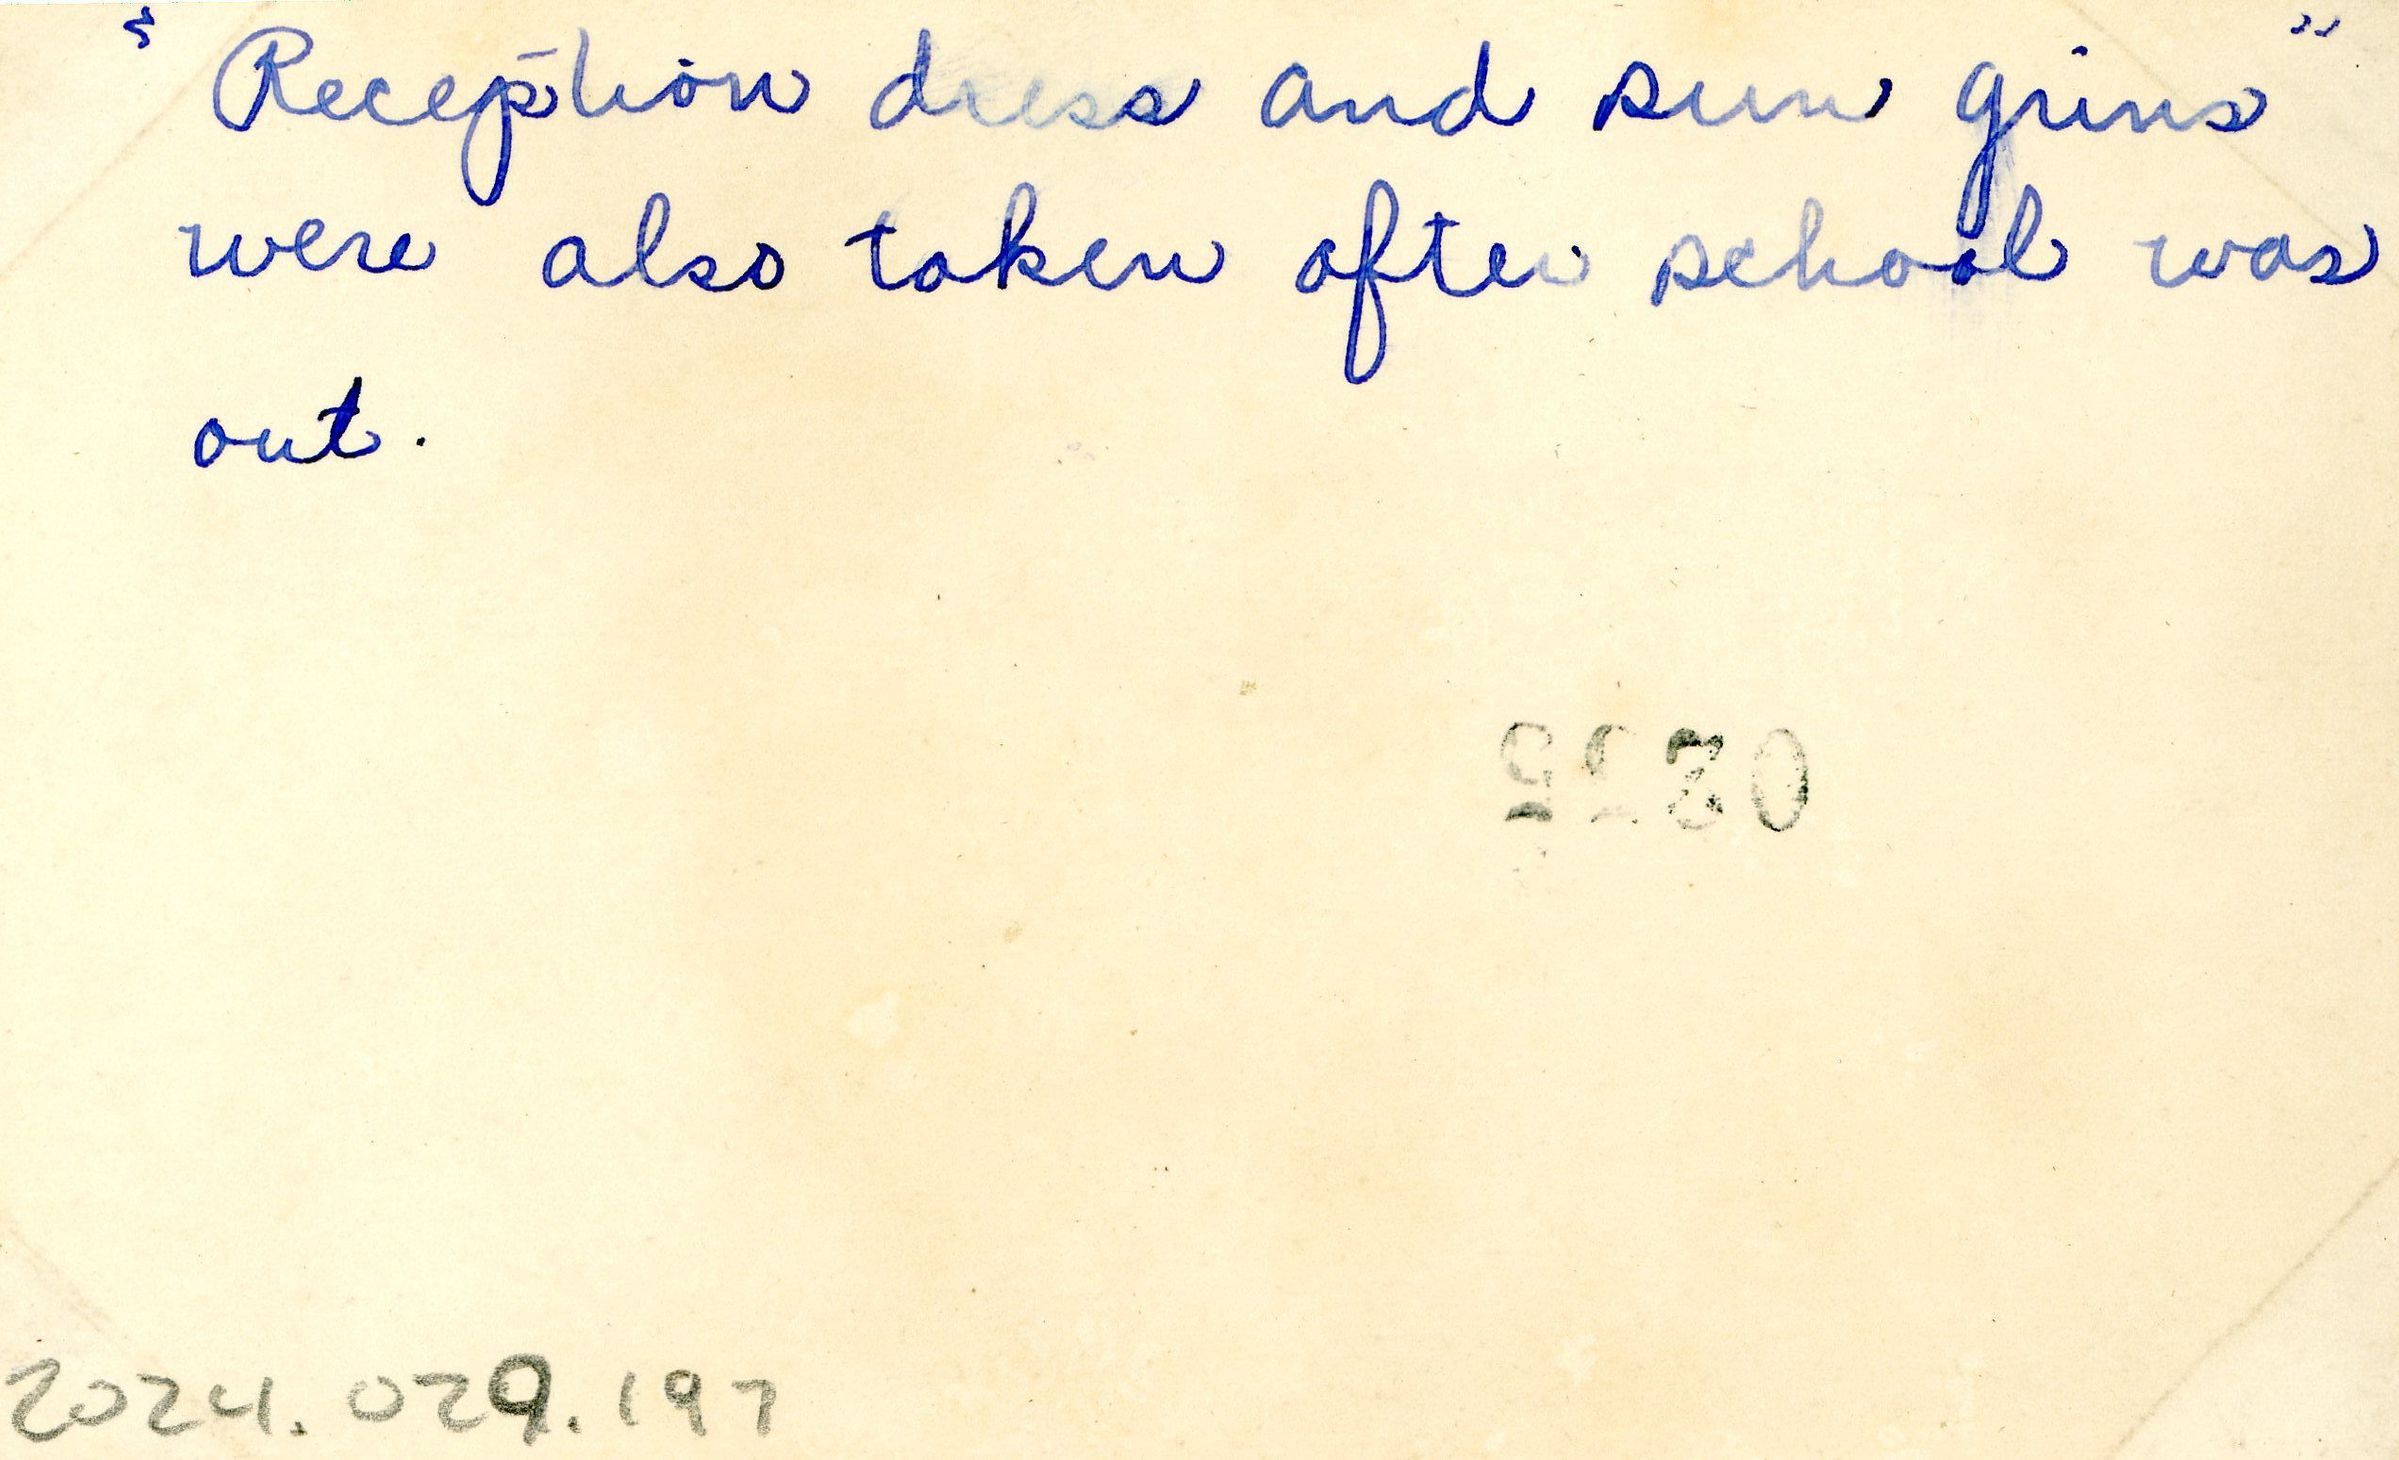 "Reception dress and sun grins"
were also taken after school was
out.
2024.029.197